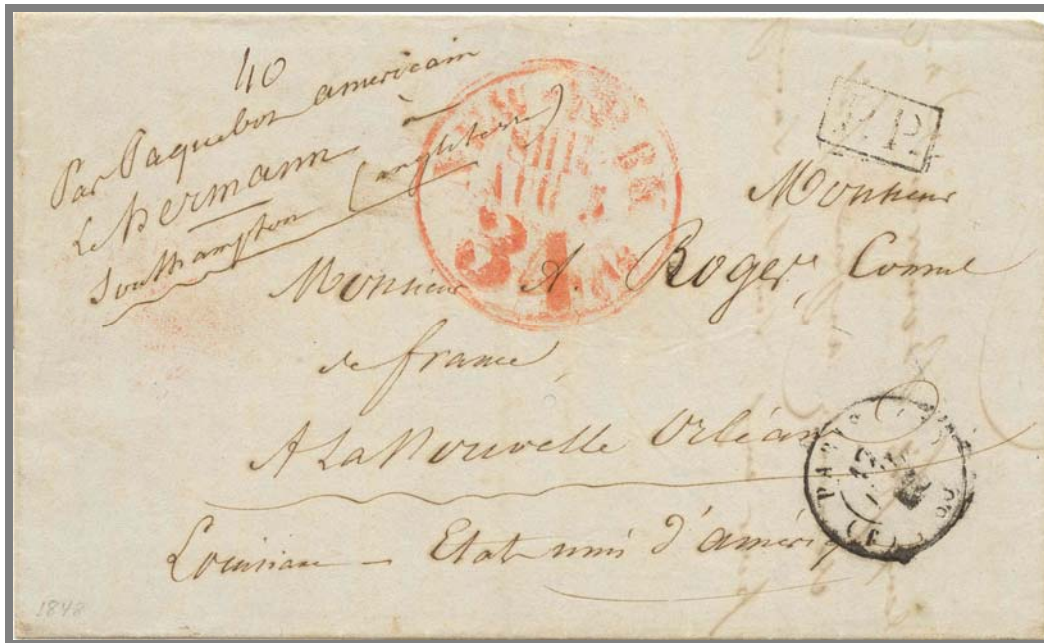 40
Par Paquebot americain
Le Hermann à
Southampton (angleterre)
NEW YORK
SHIP
AUG 3
34
P.P.
Monsieur
Monsieur A. Roger, Consul
de france
A La Nouvelle Orléans
PARIS
(60)
Louisiane - Etat-unis d'amériq
1848